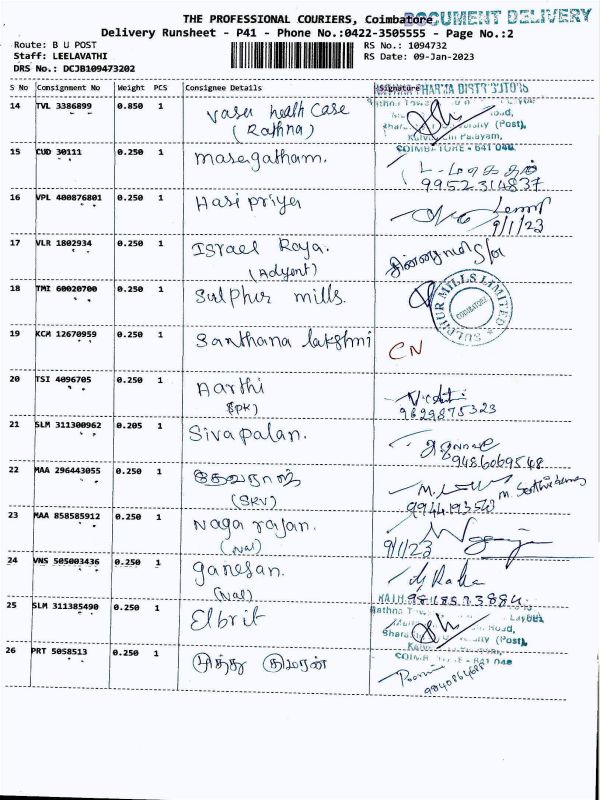 THE PROFESSIONAL COURIERS, Coimbatore
DOCUMENT DELIVERY
Delivery Runsheet - P41 - Phone No.:0422-3505555 - Page No.:2
Route: B U POST
RS No.: 1094732
Staff: LEELAVATHI
RS Date: 09-Jan-2023
DRS No.: DCJB109473202
S No Consignment No Weight PCS Consignee Details Signature
14 TVL 3386899 0.850 1 Vasu health Case
(Rathna)
COIMBATORE - 641 046
15 CUD 30111 0.250 1 masagatham.
9952314837
16 VPL 400876801 0.250 1 Hasi priya
9/1/23
17 VLR 1802934 0.250 1 Israel Raja.
(Adyent)
18 TMI 60020700 0.250 1 Sulphur mills.
SULPHUR MILLS LIMITED
COIMBATORE
19 KCM 12670959 0.250 1 Santhana lakshmi CN
20 TSI 4096705 0.250 1 Aarthi
(SPK)
9629875323
21 SLM 311300962 0.205 1 Sivapalan.
9486069548
22 MAA 296443055 0.250 1 தேவநாஸ்
(SRV)
23 MAA 858585912 0.250 1 Naga rajan.
(Nal)
9/1/23
24 VNS 505003436 0.250 1 ganesan.
(Nal)
25 SLM 311385490 0.250 1 Elbrit
26 PRT 5058513 0.250 1 முத்து குமரன்